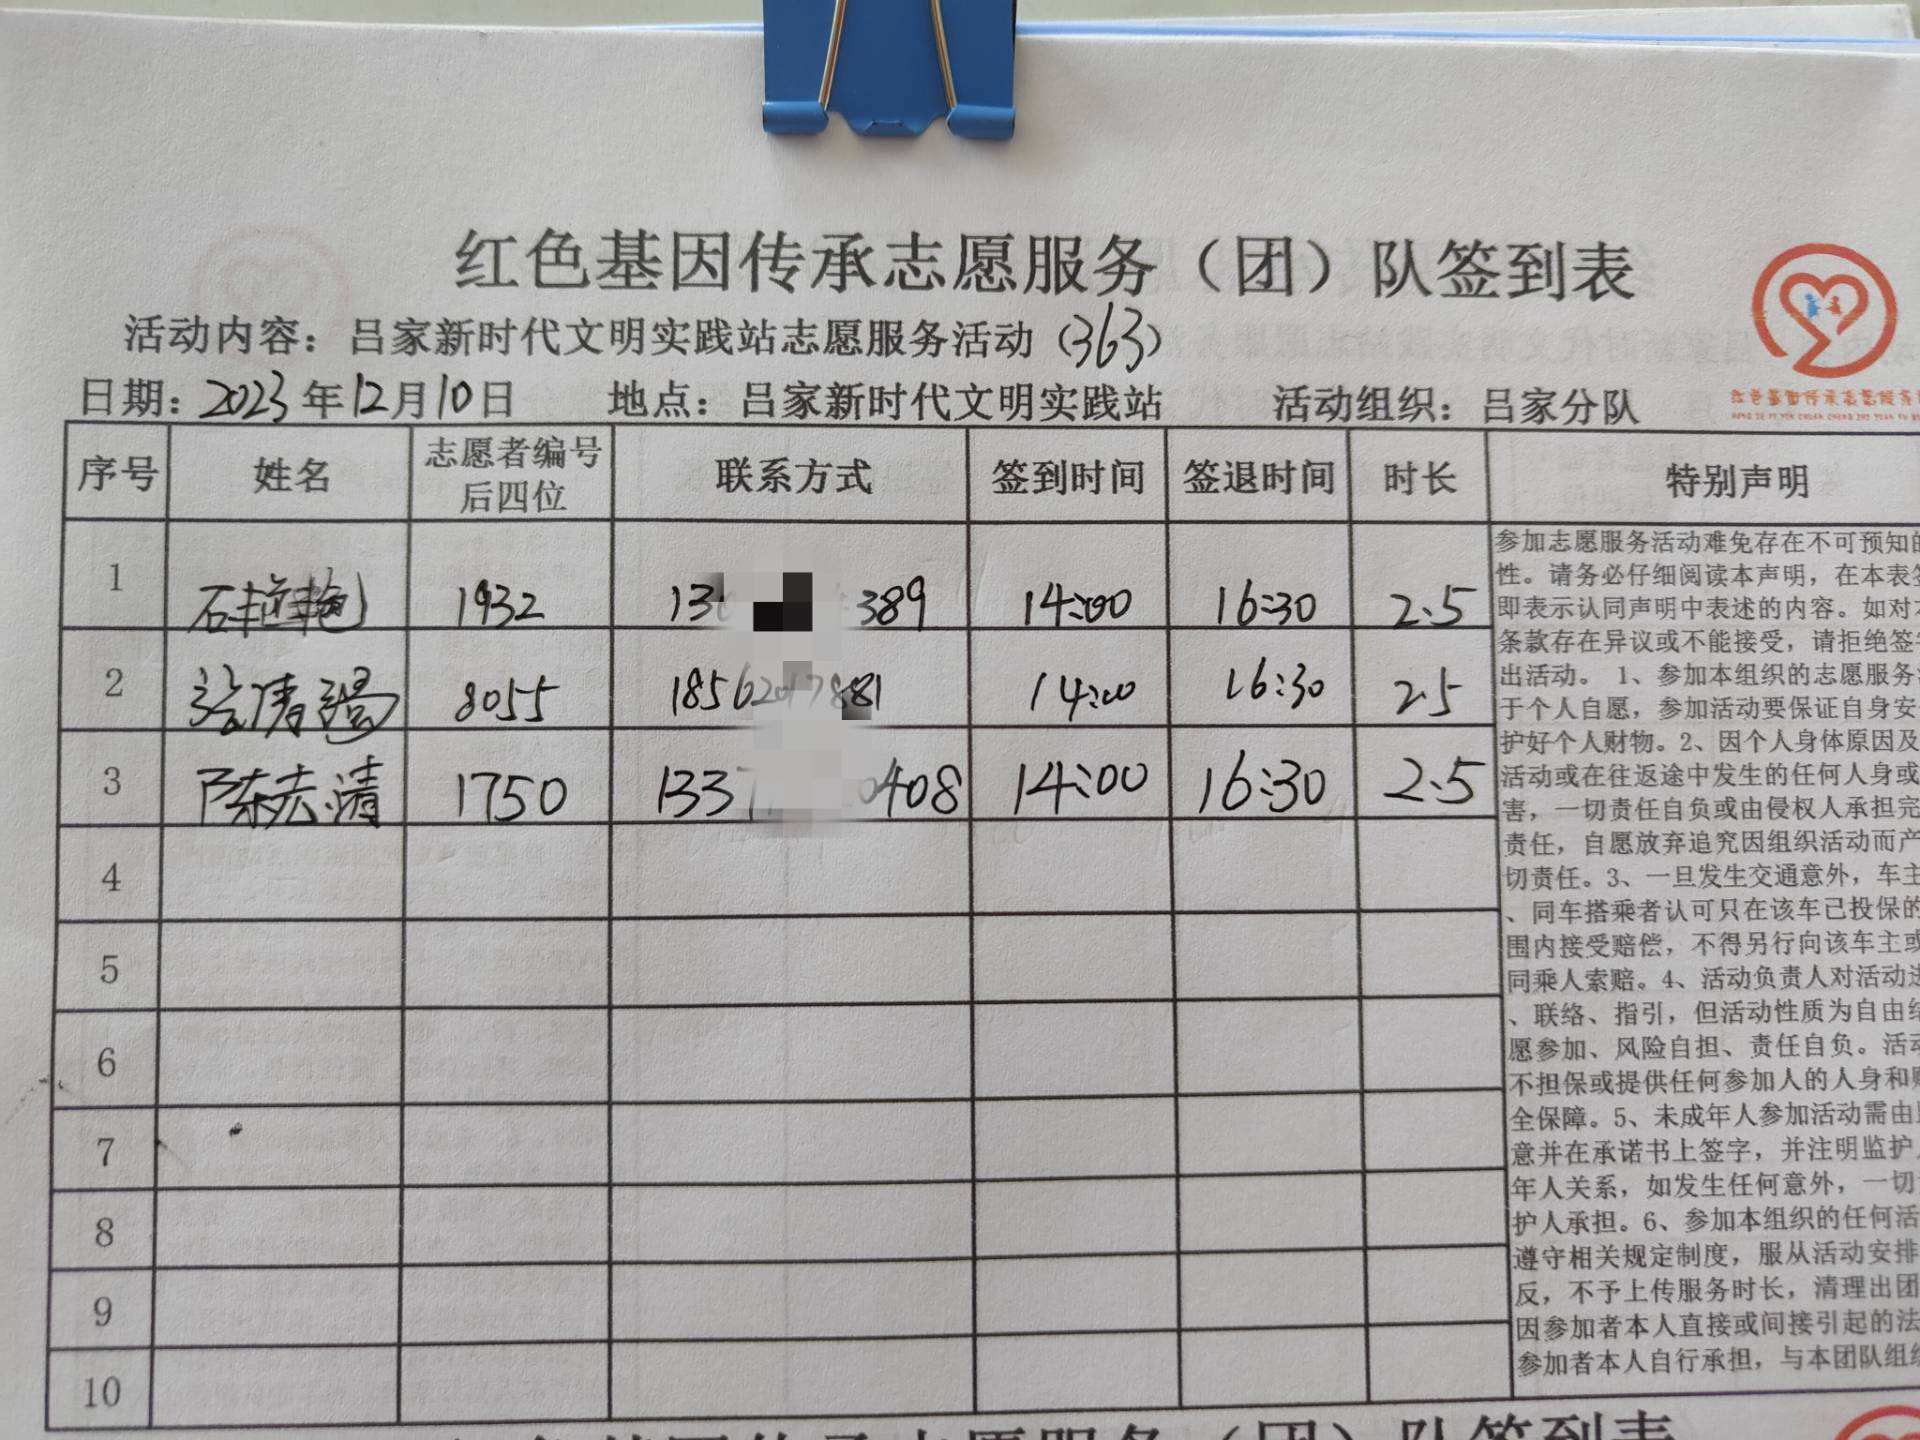 红色基因传承志愿服务（团）队签到表
活动内容：吕家新时代文明实践站志愿服务活动（363）
日期：2023年12月10日 地点：吕家新时代文明实践站 活动组织：吕家分队
序号 姓名 志愿者编号后四位 联系方式 签到时间 签退时间 时长 特别声明
1 石艳艳 1932 13 389 14:00 16:30 2.5
2 8055 14:00 16:30 2.5
3 陈志清 1750 133 0408 14:00 16:30 2.5
4
5
6
7
8
9
10
参加志愿服务活动难免存在不可预知的
性。请务必仔细阅读本声明，在本表签
即表示认同声明中表述的内容。如对本
条款存在异议或不能接受，请拒绝签字
出活动。 1、参加本组织的志愿服务
于个人自愿，参加活动要保证自身安
护好个人财物。2、因个人身体原因及
活动或在往返途中发生的任何人身或
害，一切责任自负或由侵权人承担完
责任，自愿放弃追究因组织活动而产
切责任。3、一旦发生交通意外，车主
、同车搭乘者认可只在该车已投保的
围内接受赔偿，不得另行向该车主或
同乘人索赔。4、活动负责人对活动进
、联络、指引，但活动性质为自由结
愿参加、风险自担、责任自负。活动
不担保或提供任何参加人的人身和财
全保障。5、未成年人参加活动需由
意并在承诺书上签字，并注明监护
年人关系，如发生任何意外，一切
护人承担。6、参加本组织的任何活
遵守相关规定制度，服从活动安排
反，不予上传服务时长，清理出团
因参加者本人直接或间接引起的法
参加者本人自行承担，与本团队组织